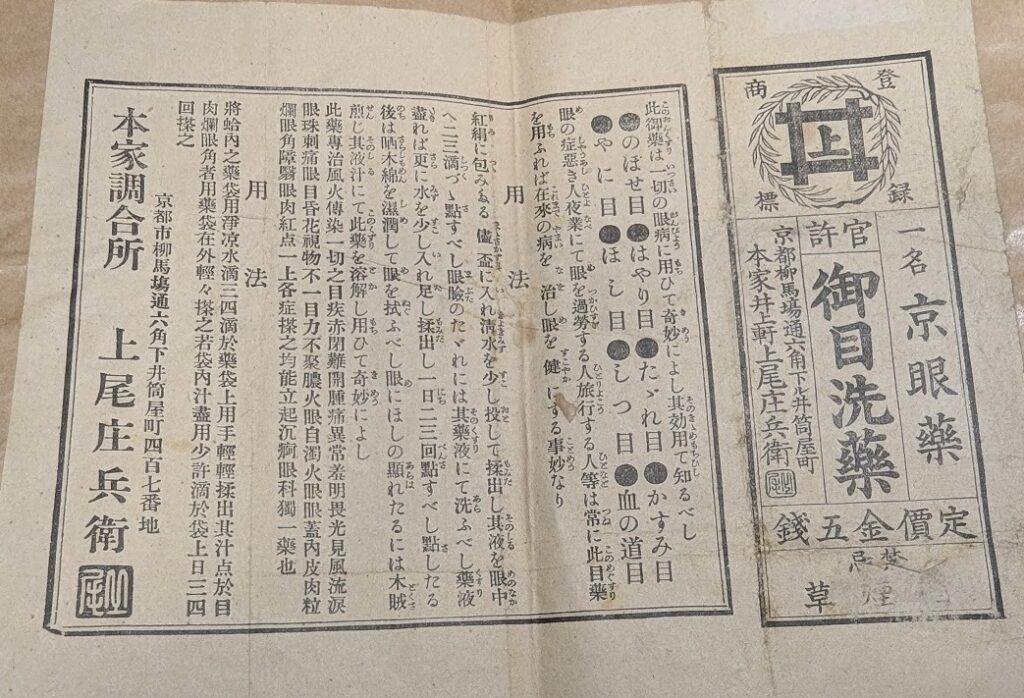 登
錄
商
標
上
一名 京眼藥
官許
御目洗藥
京都柳馬場通六角下ル井筒屋町
本家井上軒上尾庄兵衛
定價金五錢
忌
煙草
此御藥は一切の眼病に用ひて奇妙によし其効用て知るべし
●のぼせ目●はやり目●たゞれ目●かすみ目
●やに目●ほし目●しつ目●血の道目
眼の症惡き人夜業にて眼を過勞する人旅行する人等は常に此目藥
を用ふれば在來の病を治し眼を健にする事妙なり
用法
紅絹に包みたる儘盃に入れ清水を少し投して揉出し其液を眼中
へ二三滴づゝ點すべし眼瞼のたゞれには其藥液にて洗ふべし藥液
盡れば更に水を少し入れ足し揉出し一日二三回點すべし點したる
後は晒木綿を濕潤して眼を拭ふべし眼にほしの顯れたるには木賊
煎じ其液汁にて此藥を溶解し用ひて奇妙によし
此藥專治風火傳染一切之目疾赤閉難開腫痛異常羞明畏光見風流淚
眼珠刺痛眼目昏花視物不一目力不聚膿火眼自濁火眼眼蓋內皮肉粒
爛眼角障翳眼肉紅点一上各症搽之均能立起沉痾眼科獨一藥也
用法
將蛤內之藥袋用淨凉水滴三四滴於藥袋上用手輕輕揉出其汁点於目
肉爛眼角者用藥袋在外輕々搽之若袋內汁盡用少許滴於袋上日三四
回搽之
京都市柳馬塲通六角下井筒屋町四百七番地
本家調合所 上尾庄兵衛